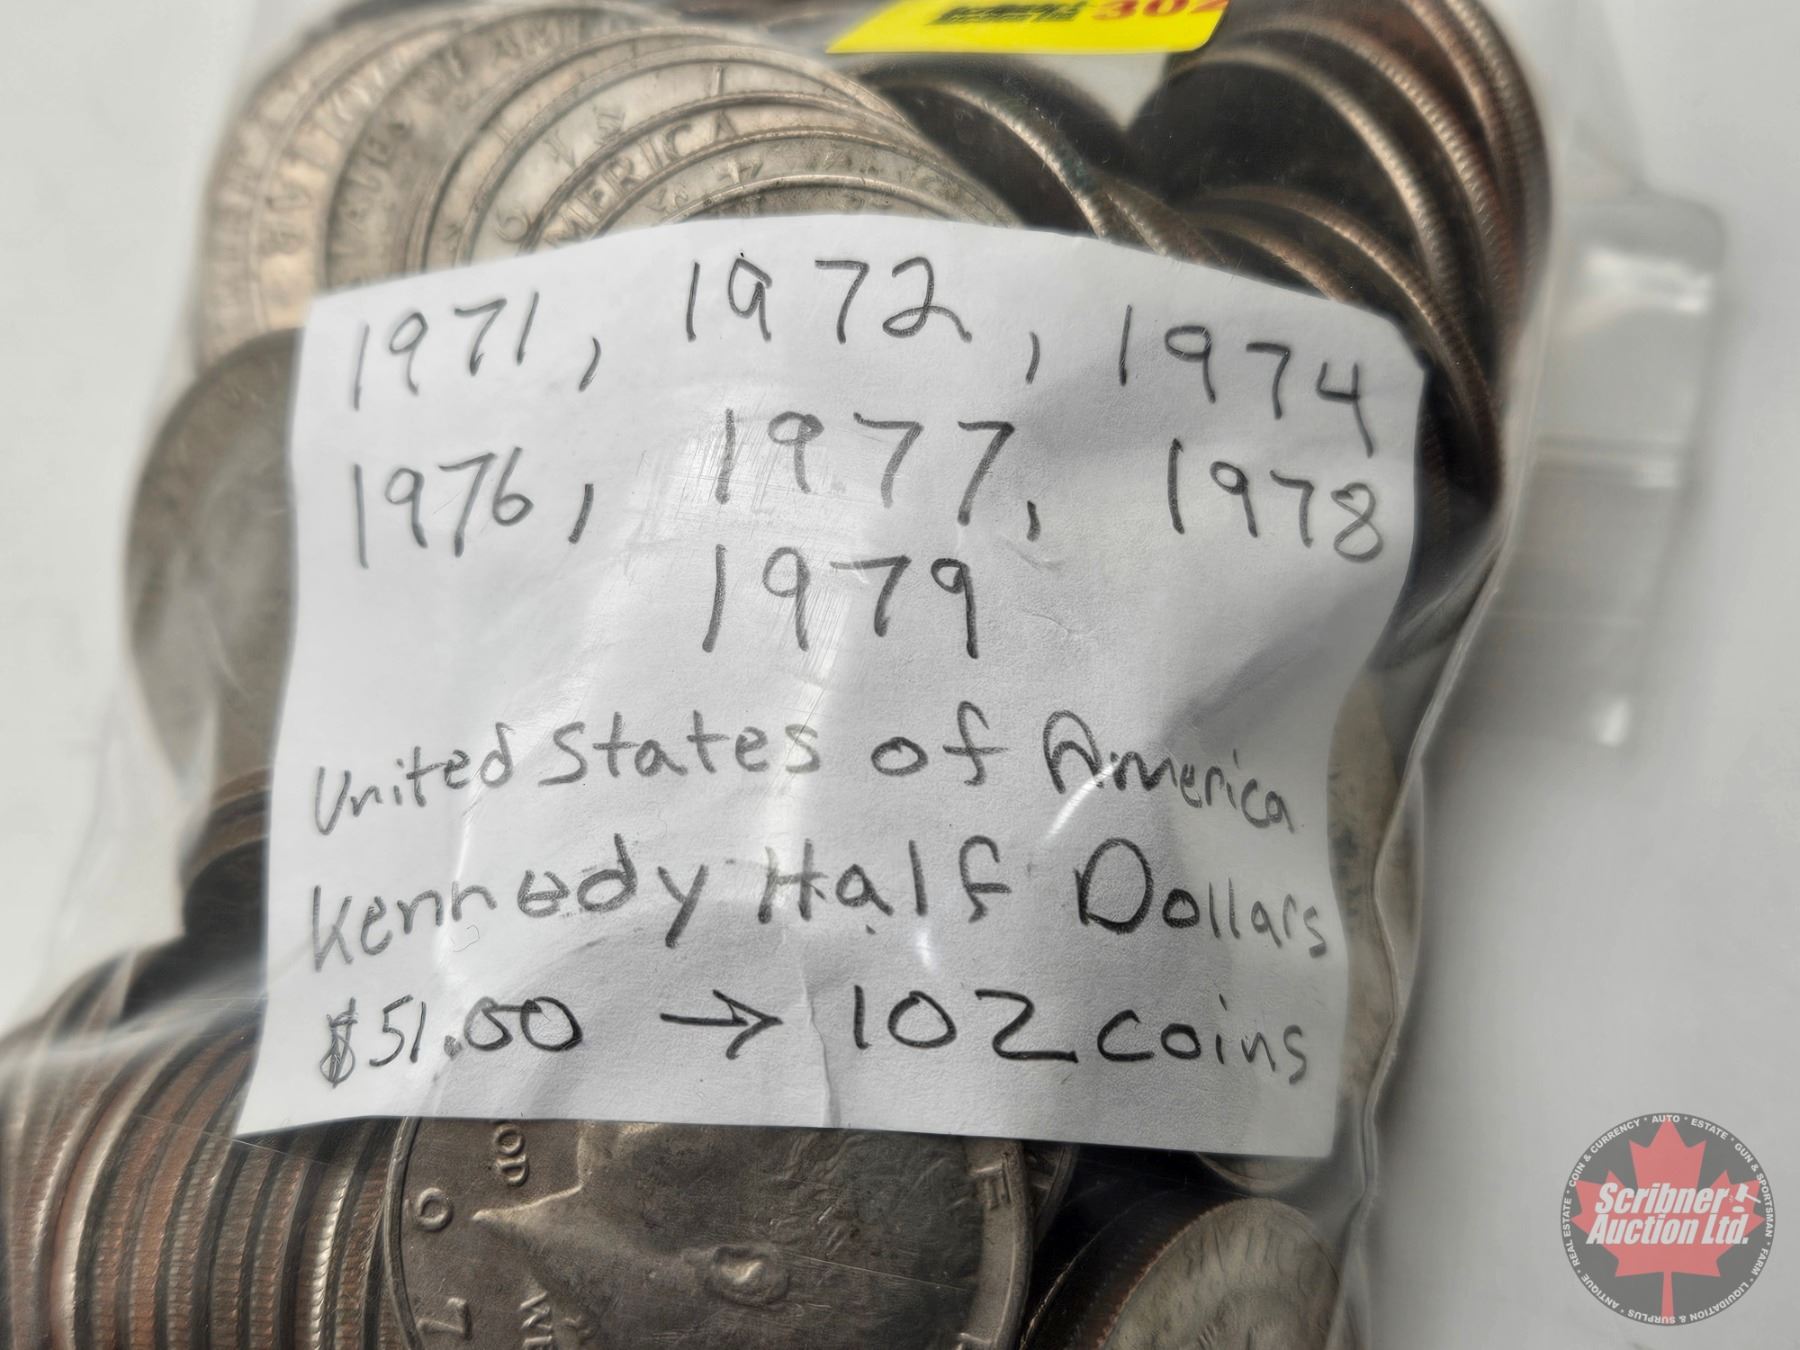 302
AMERICA
1971, 1972, 1974
1976, 1977, 1978
1979
United States of America
Kennedy Half Dollars
$51.00 → 102 coins
Scribner
Auction Ltd.
ANTIQUE • REAL ESTATE • COIN & CURRENCY • AUTO • ESTATE • GUN & SPORTSMAN • FARM • LIQUIDATION & SURPLUS •